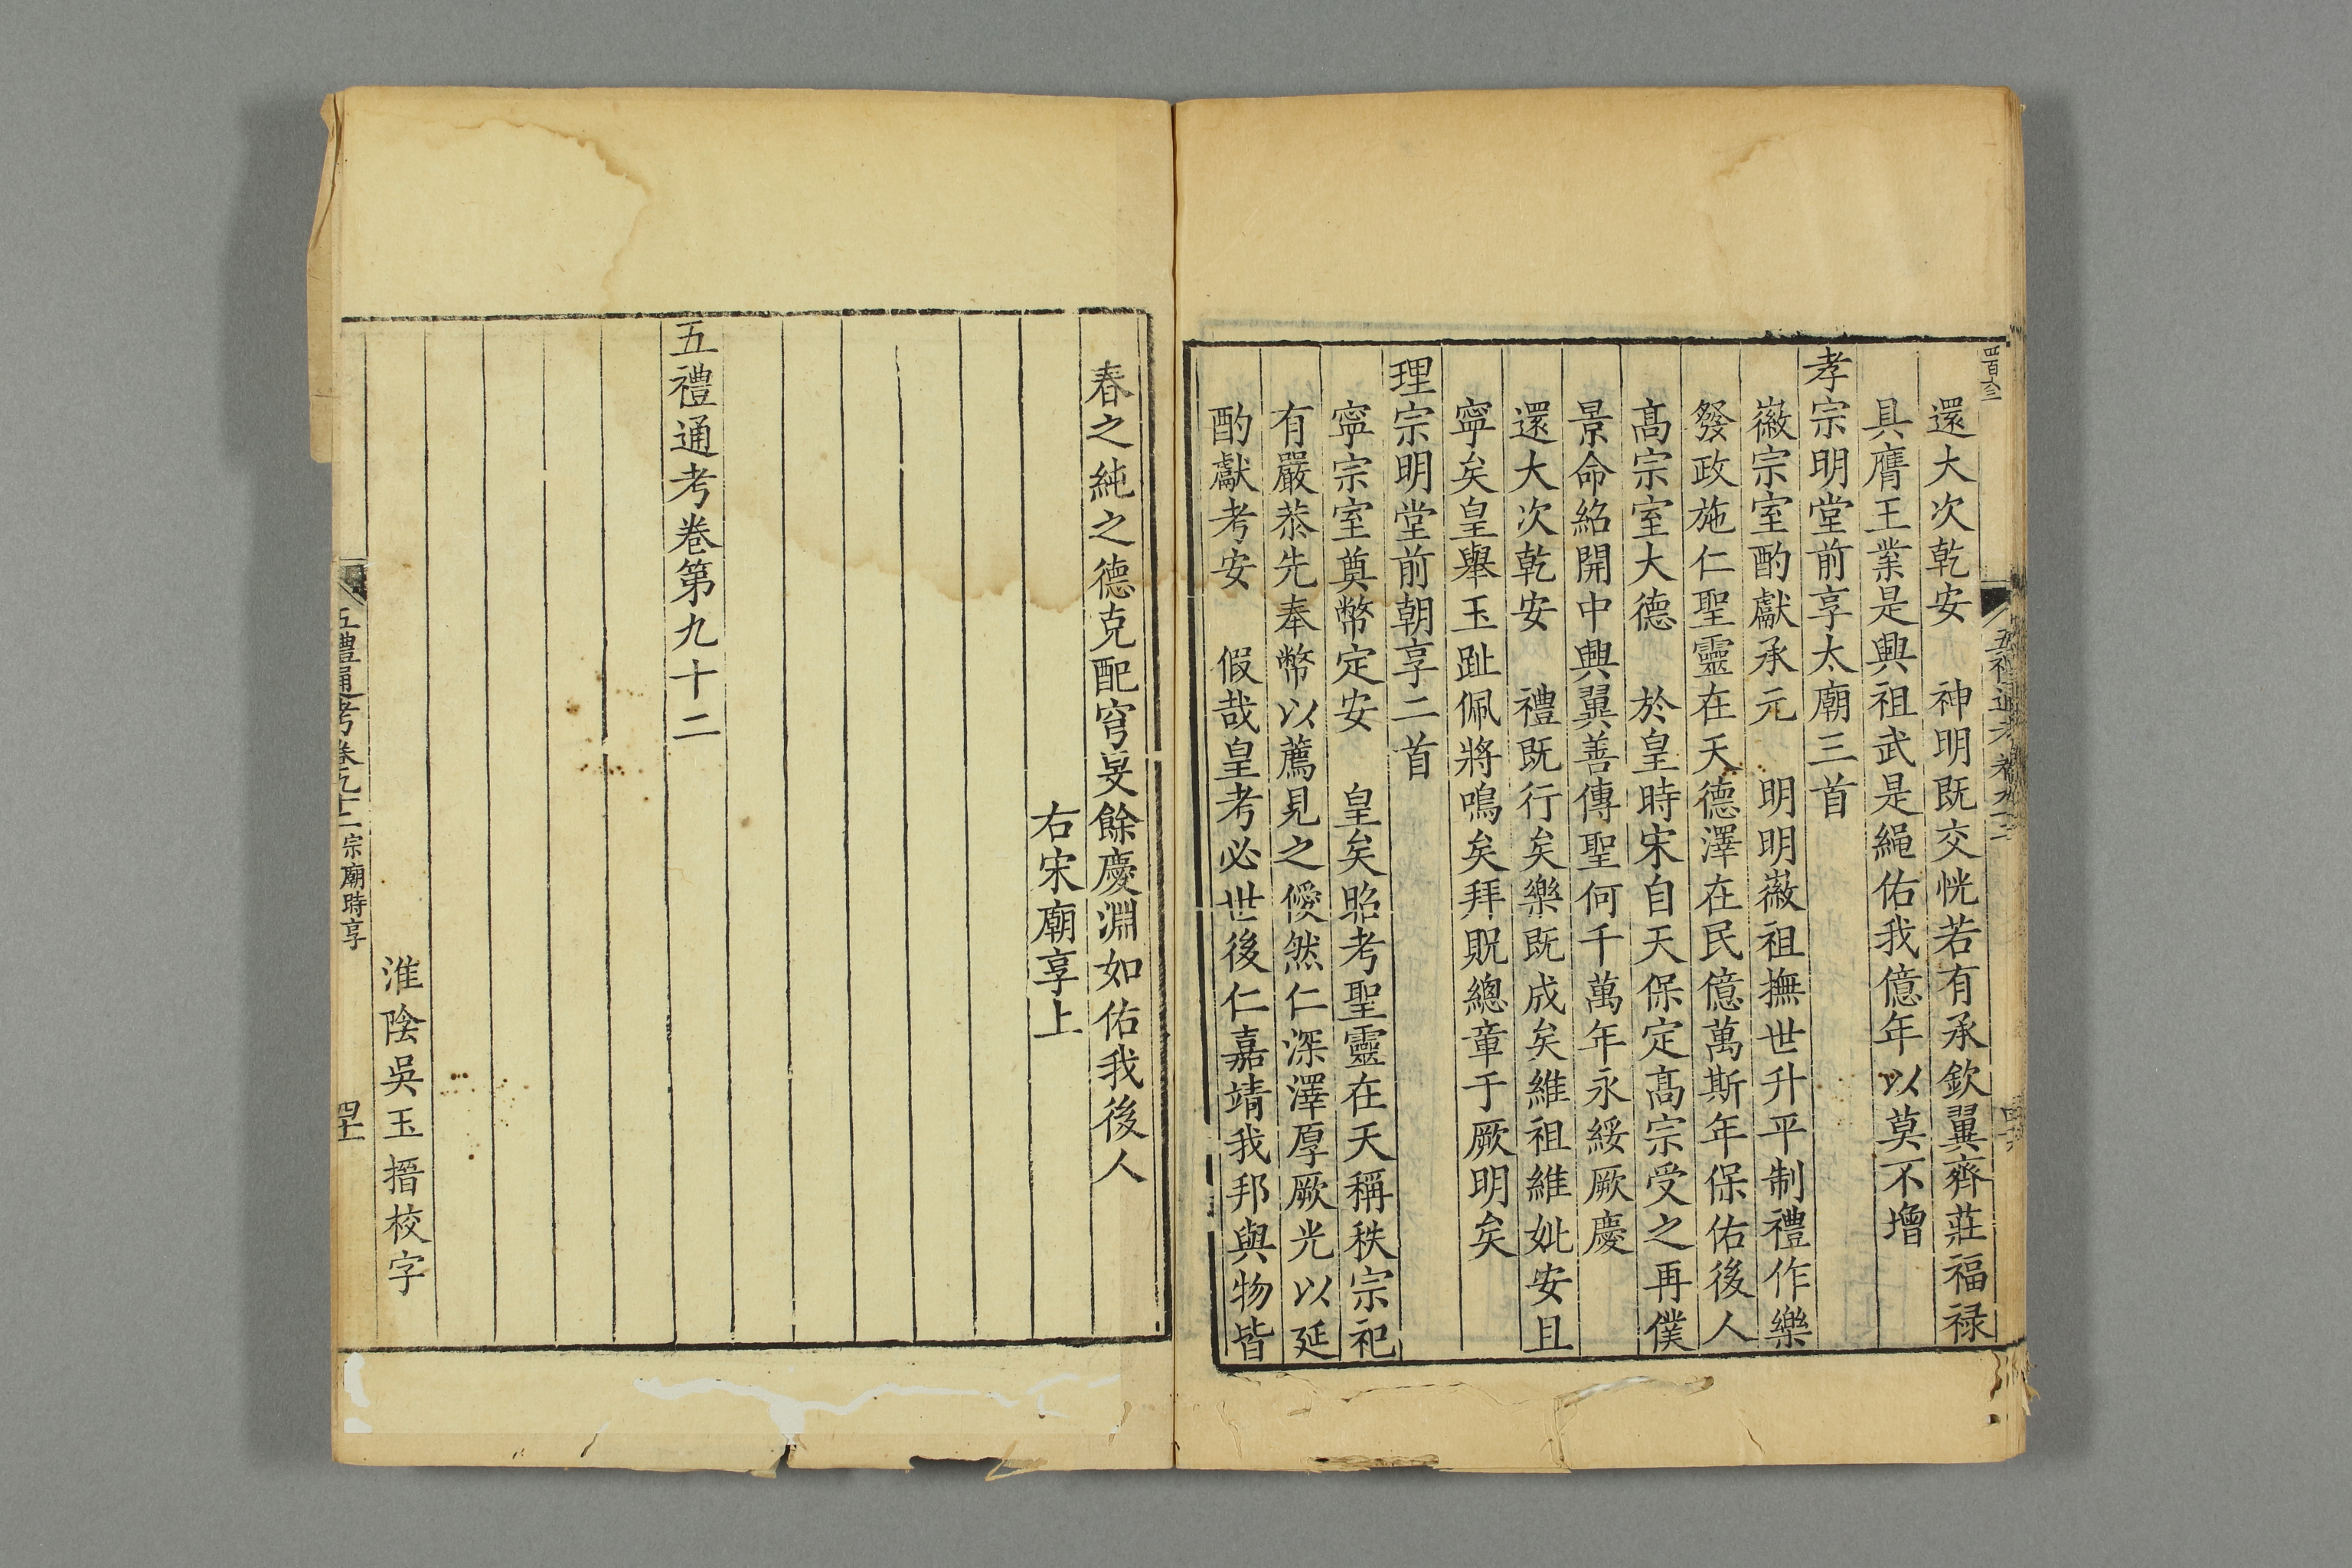 還大次乾安　神明既交恍若有承欽翼齊莊福禄
具膺王業是興祖武是繩佑我億年以莫不增
孝宗明堂前享太廟三首
徽宗室酌獻承元　明明徽祖撫世升平制禮作樂
發政施仁聖靈在天德澤在民億萬斯年保佑後人
髙宗室大德　於皇時宋自天保定髙宗受之再僕
景命紹開中興翼善傳聖何千萬年永綏厥慶
還大次乾安　禮既行矣樂既成矣維祖維妣安且
寧矣皇舉玉趾佩將鳴矣拜貺總章于厥明矣
理宗明堂前朝享二首
寧宗室奠幣定安　皇矣昭考聖靈在天稱秩宗祀
有嚴恭先奉幣以薦見之僾然仁深澤厚厥光以延
酌獻考安　假哉皇考必世後仁嘉靖我邦與物皆
春之純之德克配穹旻餘慶淵如佑我後人
右宋廟享上
五禮通考卷第九十二
淮陰吳玉搢校字
五禮通考卷九十二 宗廟時享